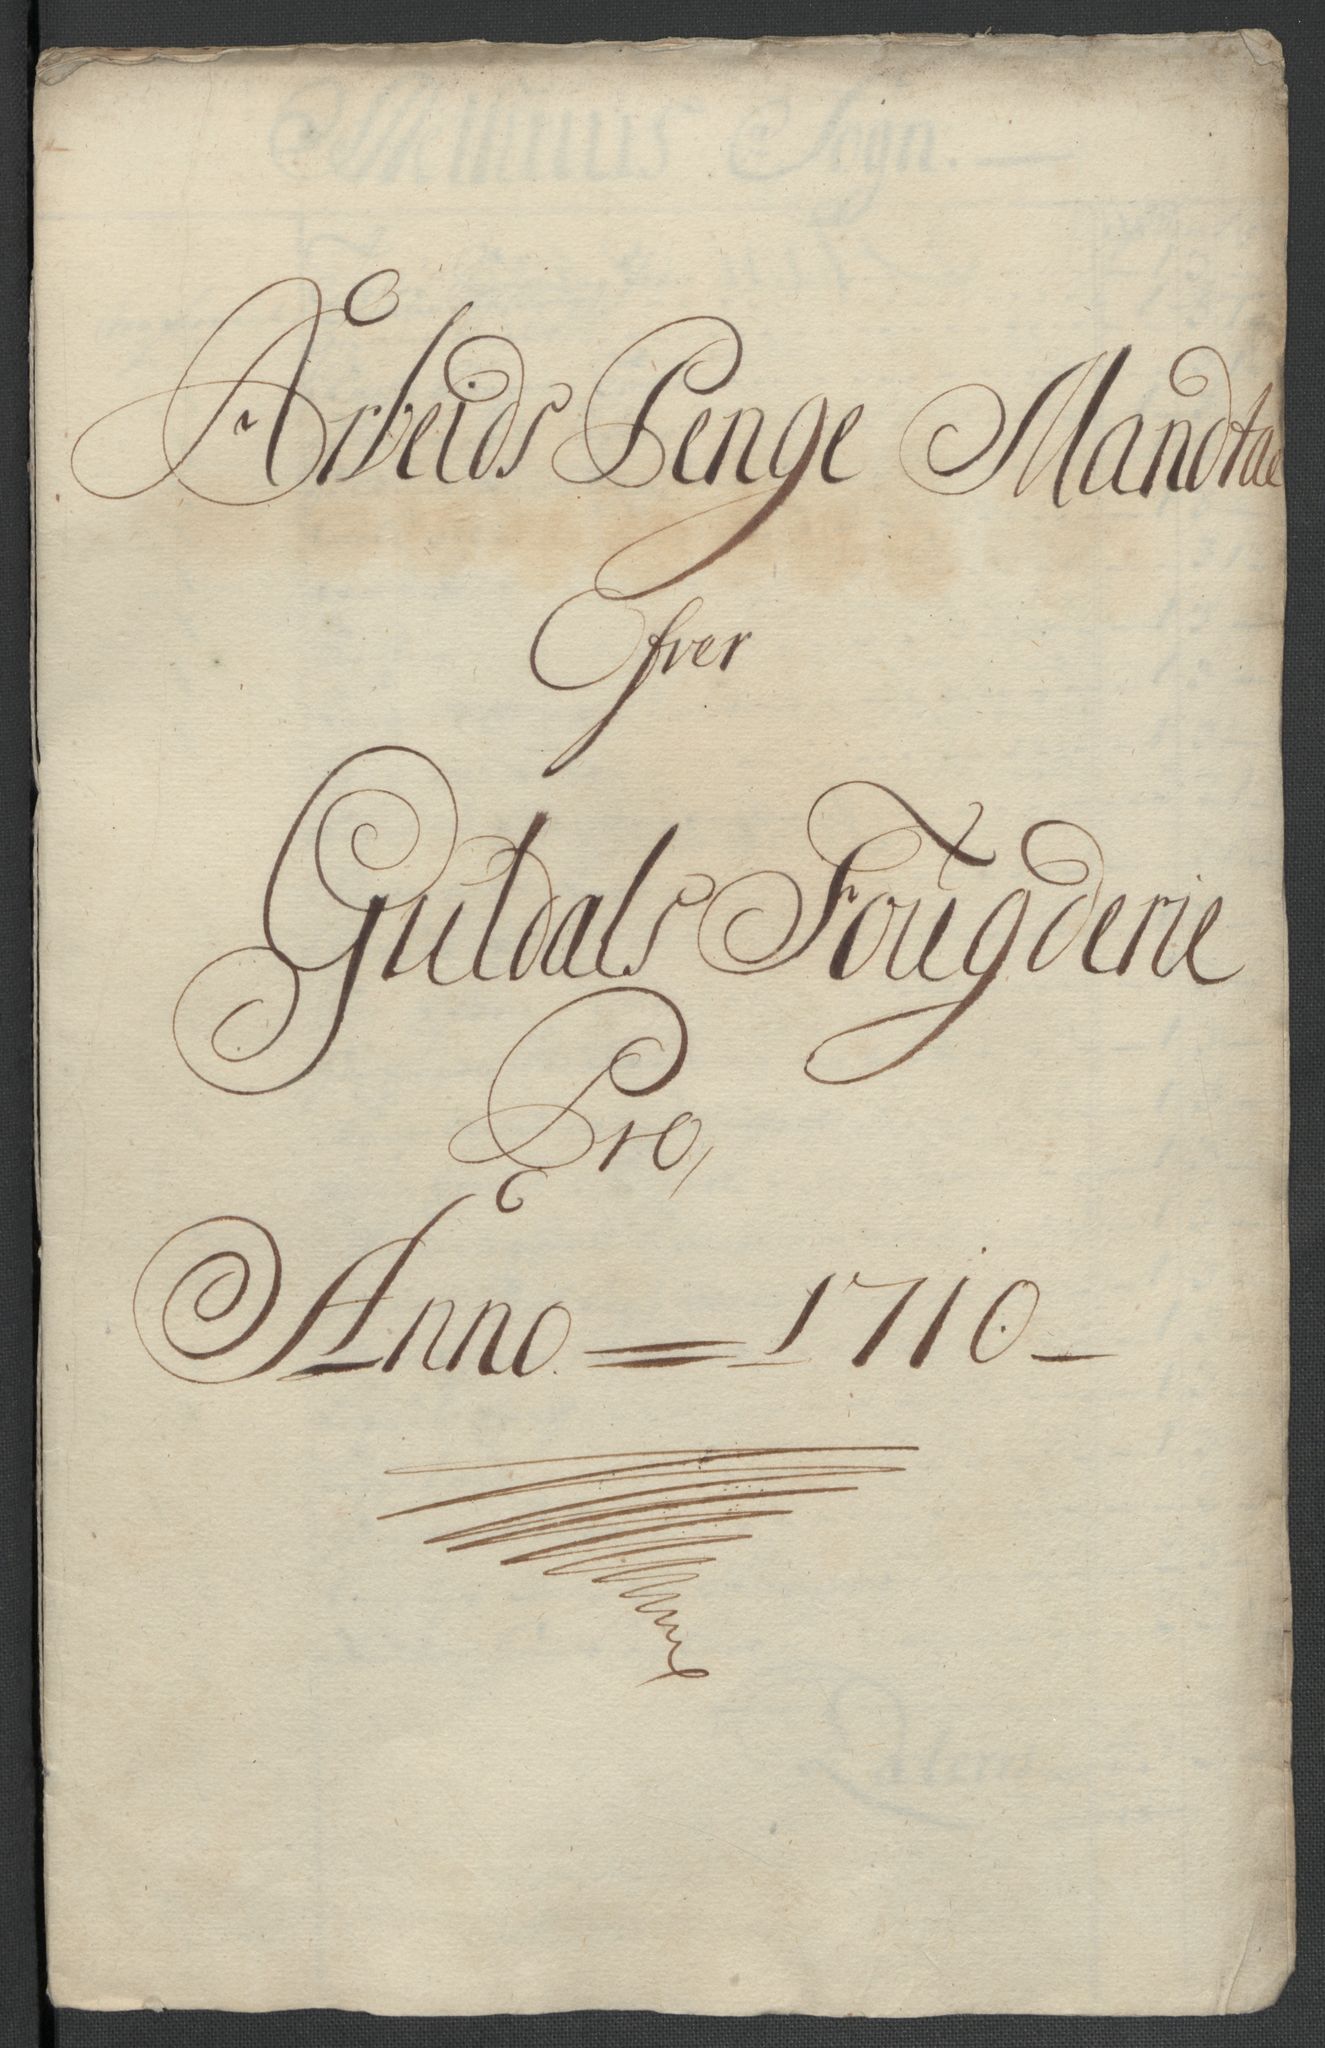 Arbeids Penge Mandtal
Ofver
Guldals Fougderie
Pro,
Anno = 1710 –